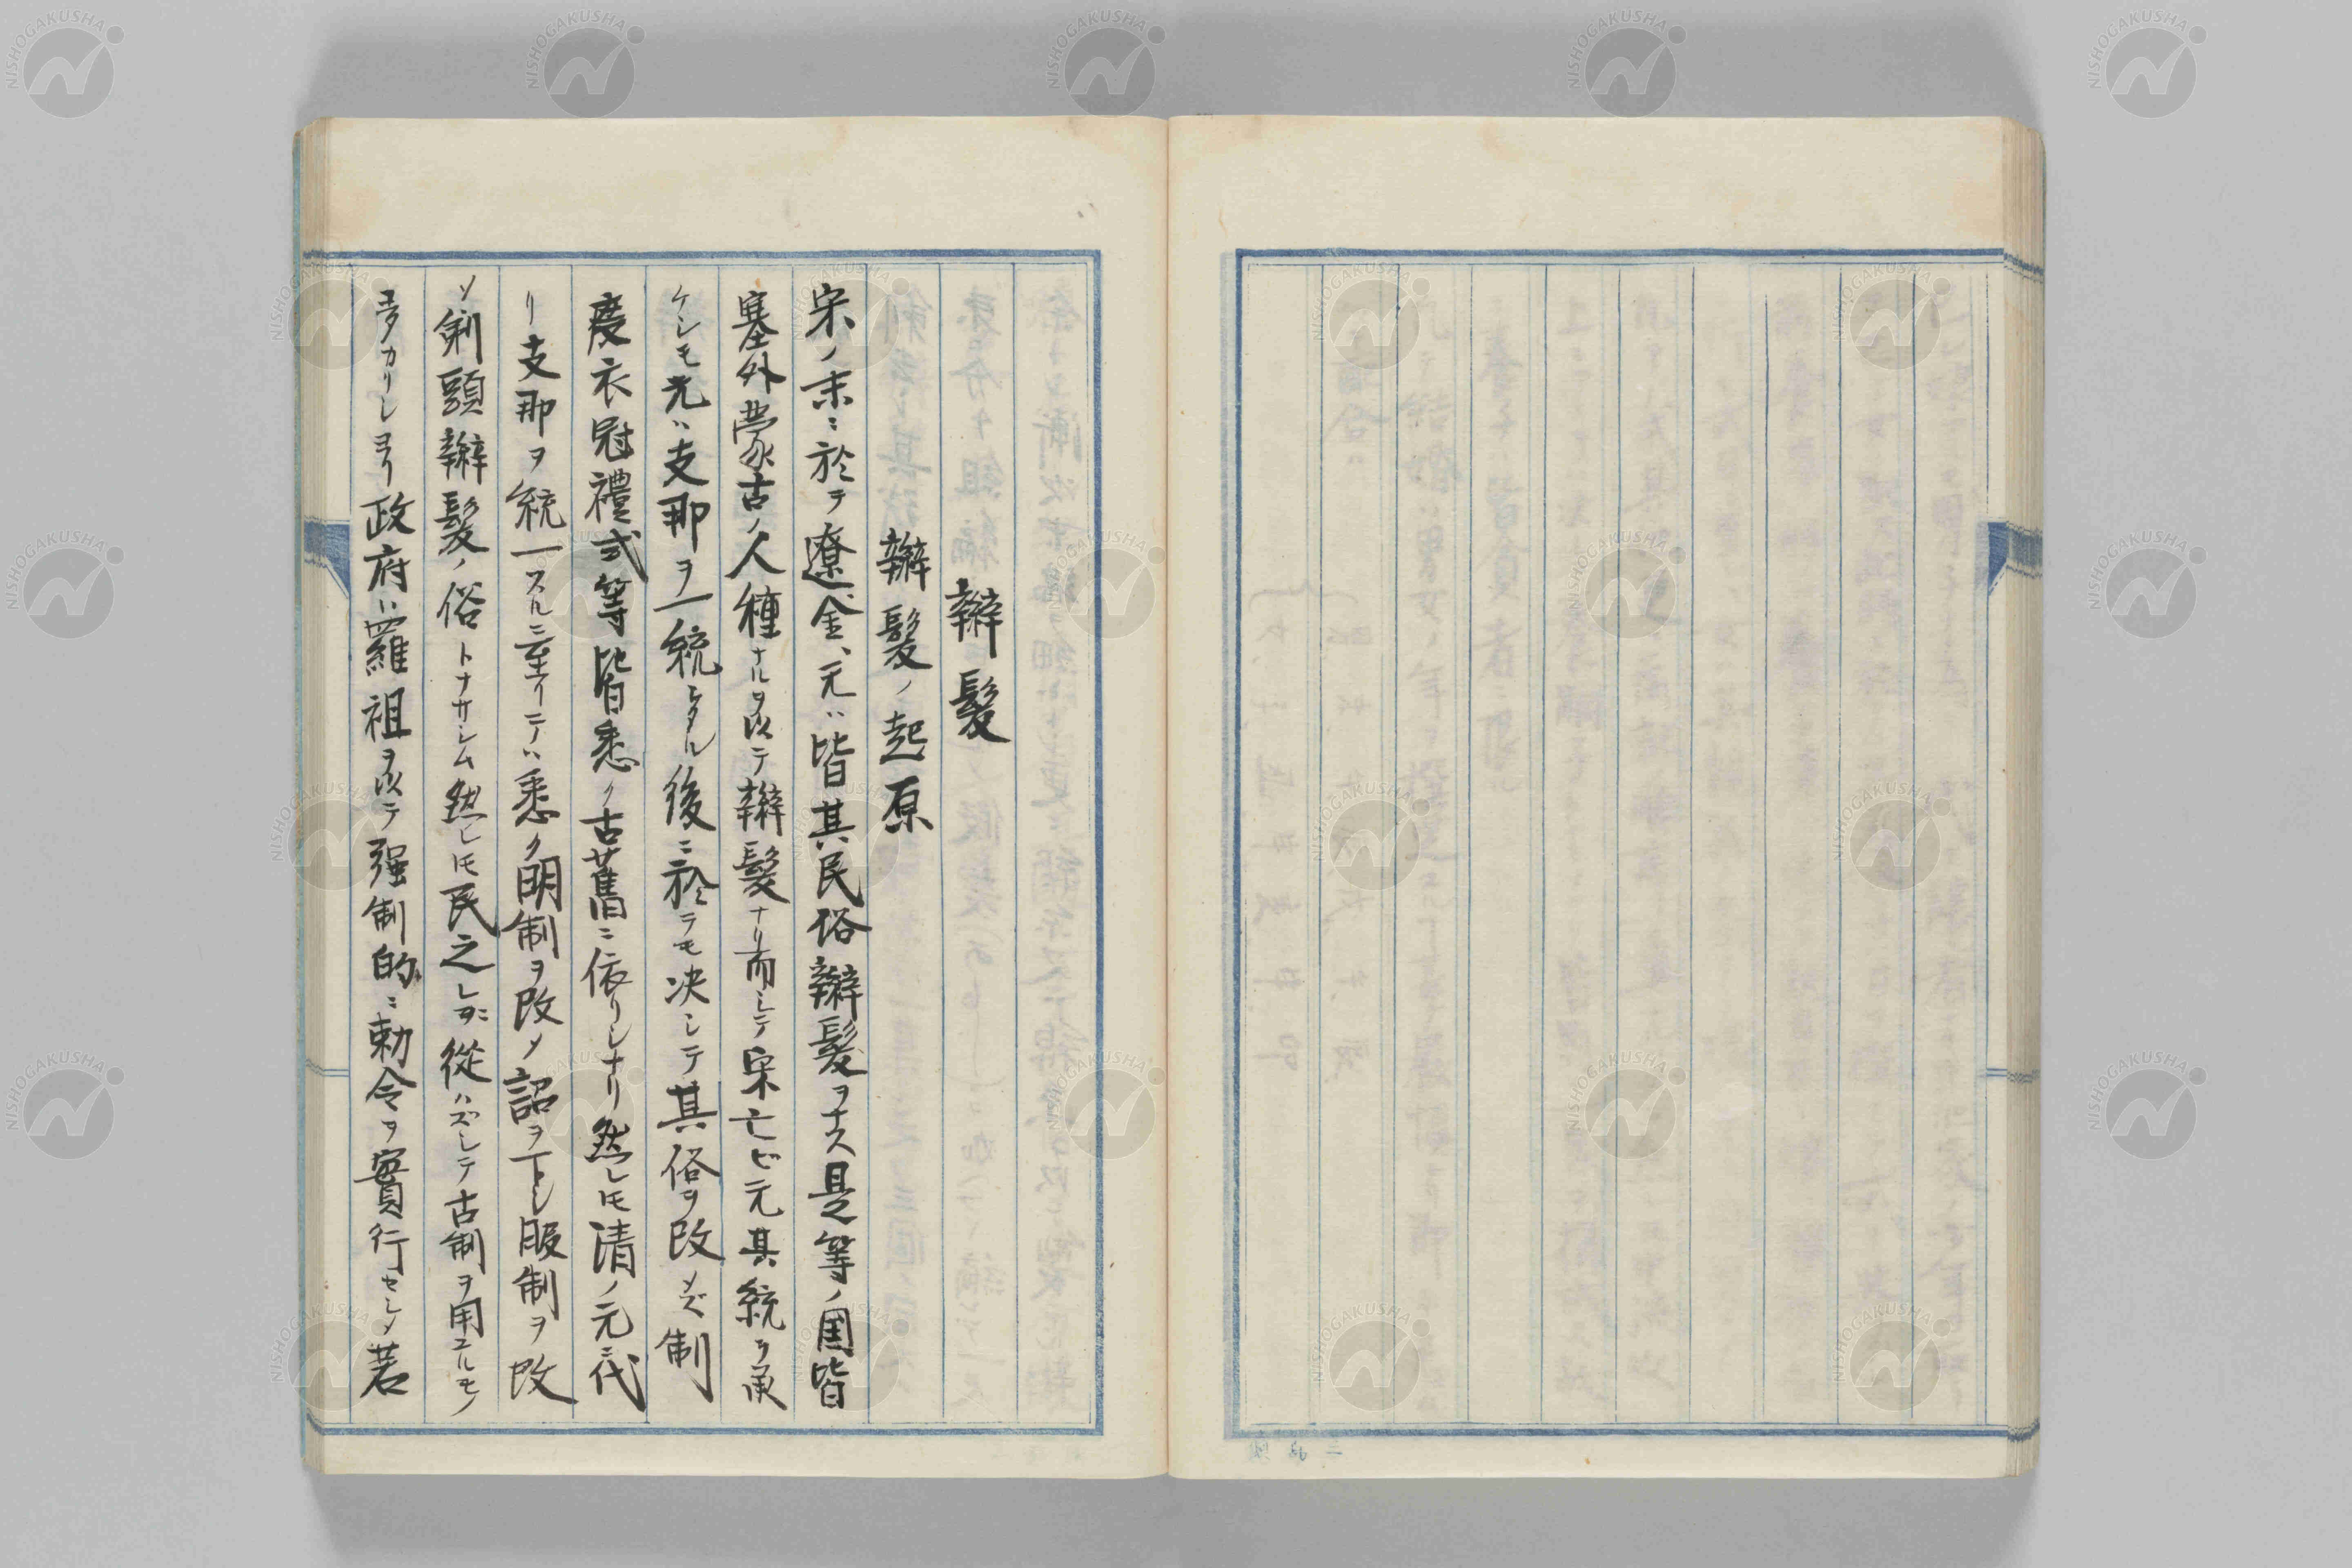 辮髮
辮髮ノ起原
宋ノ末ニ於テ遼金、元ハ皆其民俗辮髮ヲナス是等ノ国皆
塞外蒙古ノ人種ナルヲ以テ辮髮ナリ而シテ宋亡ビ元其統ヲ承
ケシモ元ハ支那ヲ一統シタル後ニ於テモ决シテ其俗ヲ改メズ制
度衣冠禮式等皆悉ク古舊ニ依リシナリ然レ𪜈清ノ元代
リ支那ヲ統一スルニ至リテハ悉ク明制ヲ改メ詔ヲ下シ服制ヲ改
メ剃頭辮髮ノ俗トナサシム然レ𪜈民之レガニ從ハズシテ古制ヲ用ユルモノ
多カリシヨリ政府ハ羅祖ヲ以テ强制的ニ勅令ヲ實行セシメ若
NISHOGAKUSHA